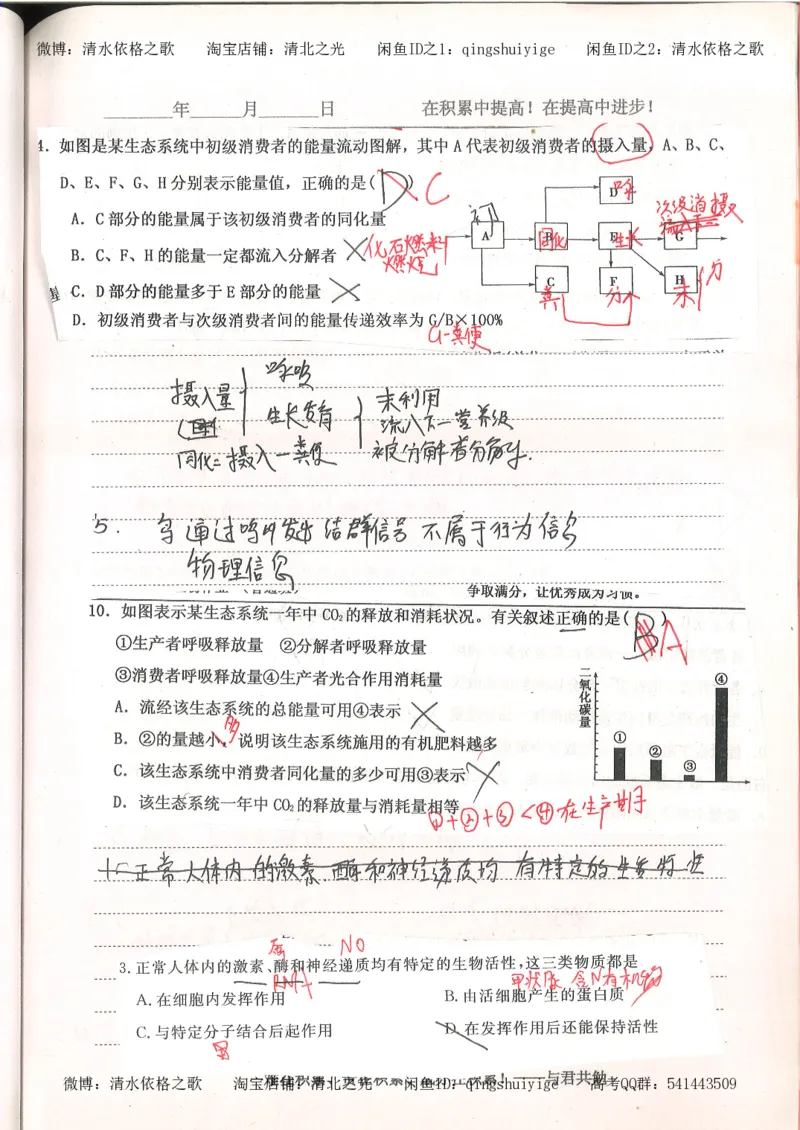 微博：清水依格之歌 淘宝店铺：清北之光 闲鱼ID之1：qingshuiyige 闲鱼ID之2：清水依格之歌
年 月 日 在积累中提高！在提高中进步！
4. 如图是某生态系统中初级消费者的能量流动图解，其中 A 代表初级消费者的摄入量，A、B、C、
D、E、F、G、H 分别表示能量值，正确的是( D ) C
A. C 部分的能量属于该初级消费者的同化量
B. C、F、H 的能量一定都流入分解者 化石燃料
燃烧
C. D 部分的能量多于 E 部分的能量
D. 初级消费者与次级消费者间的能量传递效率为 G/B×100%
G-粪便
D 呼
次级消摄
A
B 同化
E 生长
G
C
F
H
粪
分
未
分
呼吸
摄入量
生长发育
未利用
流入下一营养级
同化=摄入一粪便
被分解者分解
5. 鸟通过鸣叫发出结群信号 不属于行为信息
物理信息
争取满分，让优秀成为习惯。
10. 如图表示某生态系统一年中 CO₂ 的释放和消耗状况。有关叙述正确的是( B ) A
①生产者呼吸释放量 ②分解者呼吸释放量
③消费者呼吸释放量④生产者光合作用消耗量
A. 流经该生态系统的总能量可用④表示
多
B. ②的量越小，说明该生态系统施用的有机肥料越多
C. 该生态系统中消费者同化量的多少可用③表示
D. 该生态系统一年中 CO₂ 的释放量与消耗量相等
①+②+③<④ 在生产
二氧化碳量
① ② ③ ④
正常人体内的激素 酶和神经递质均有特定的生物
NO
3. 正常人体内的激素、酶和神经递质均有特定的生物活性，这三类物质都是
RNA 甲状腺 含N有机物
A. 在细胞内发挥作用 B. 由活细胞产生的蛋白质
C. 与特定分子结合后起作用 D. 在发挥作用后还能保持活性
与君共勉
微博：清水依格之歌 淘宝店铺：清北之光 闲鱼ID：qingshuiyige 高考QQ群：541443509